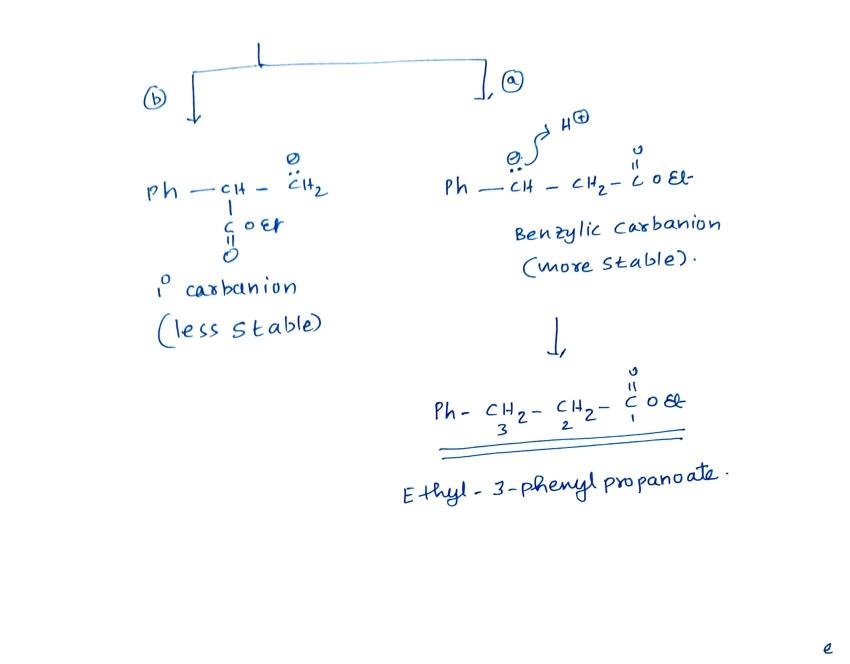 ⓑ
ⓐ
H⊕
⊖
Ph — CH — C̈H₂
|
C OEt
||
O
1° carbanion
(less stable)
⊖
O
||
Ph — C̈H — CH₂ — C OEt
Benzylic carbanion
(more stable).
O
||
Ph - CH₂ - CH₂ - C OEt
3 2 1
Ethyl - 3-phenyl propanoate.
e